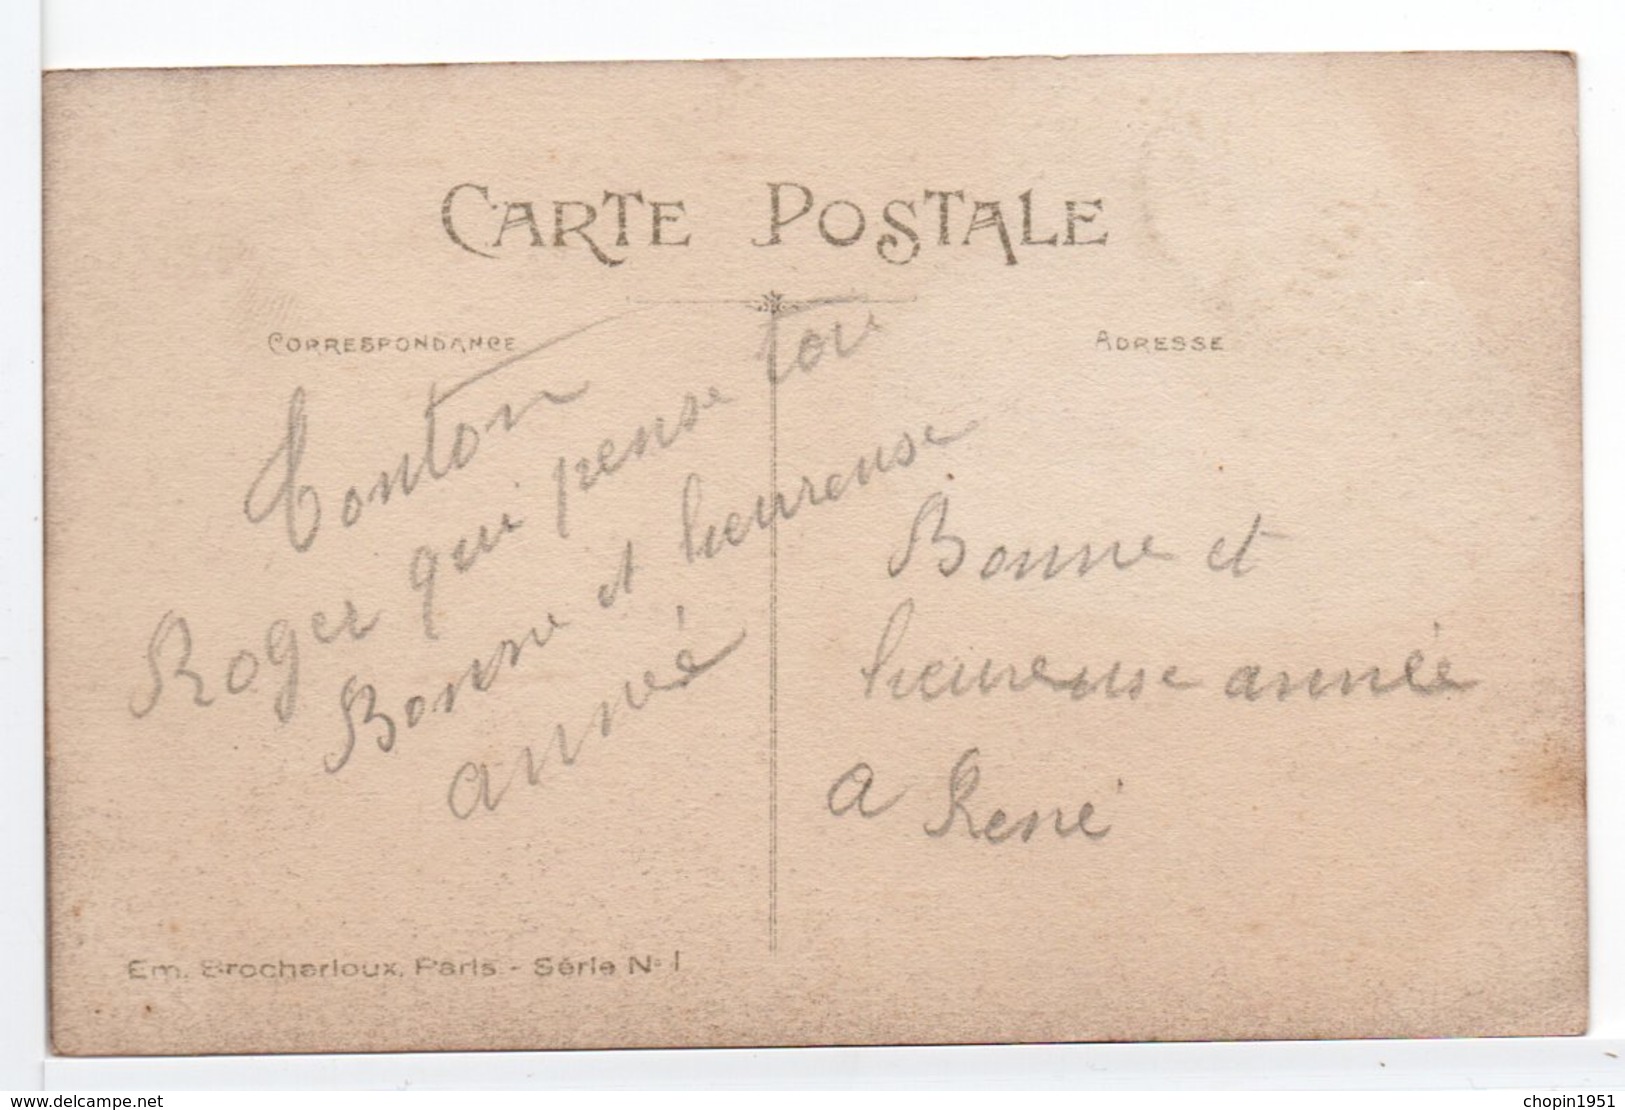 CARTE POSTALE
CORRESPONDANCE
ADRESSE
Tonton
Roger qui pense toi
Bonne et heureuse
année
Bonne et
heureuse année
a René
Em. Brocherioux, Paris - Série No 1
delcampe.net
chopin1951